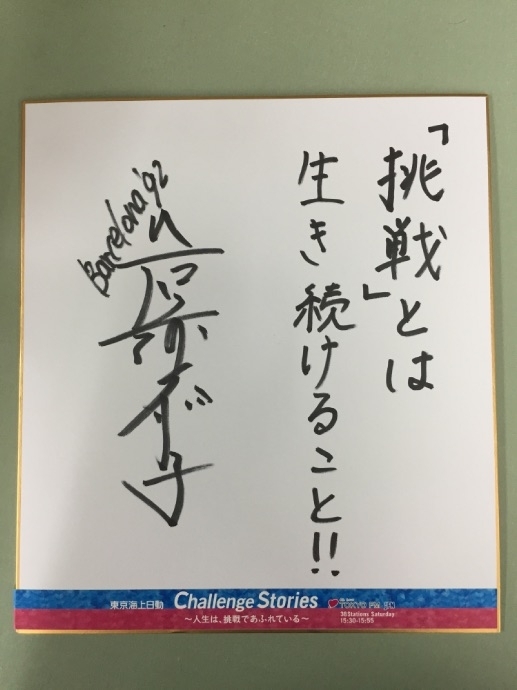 「挑戦」とは
生き続けること!!
Barcelona '92
東京海上日動 Challenge Stories
～人生は、挑戦であふれている～
TOKYO FM
38Stations Saturday
15:30-15:55